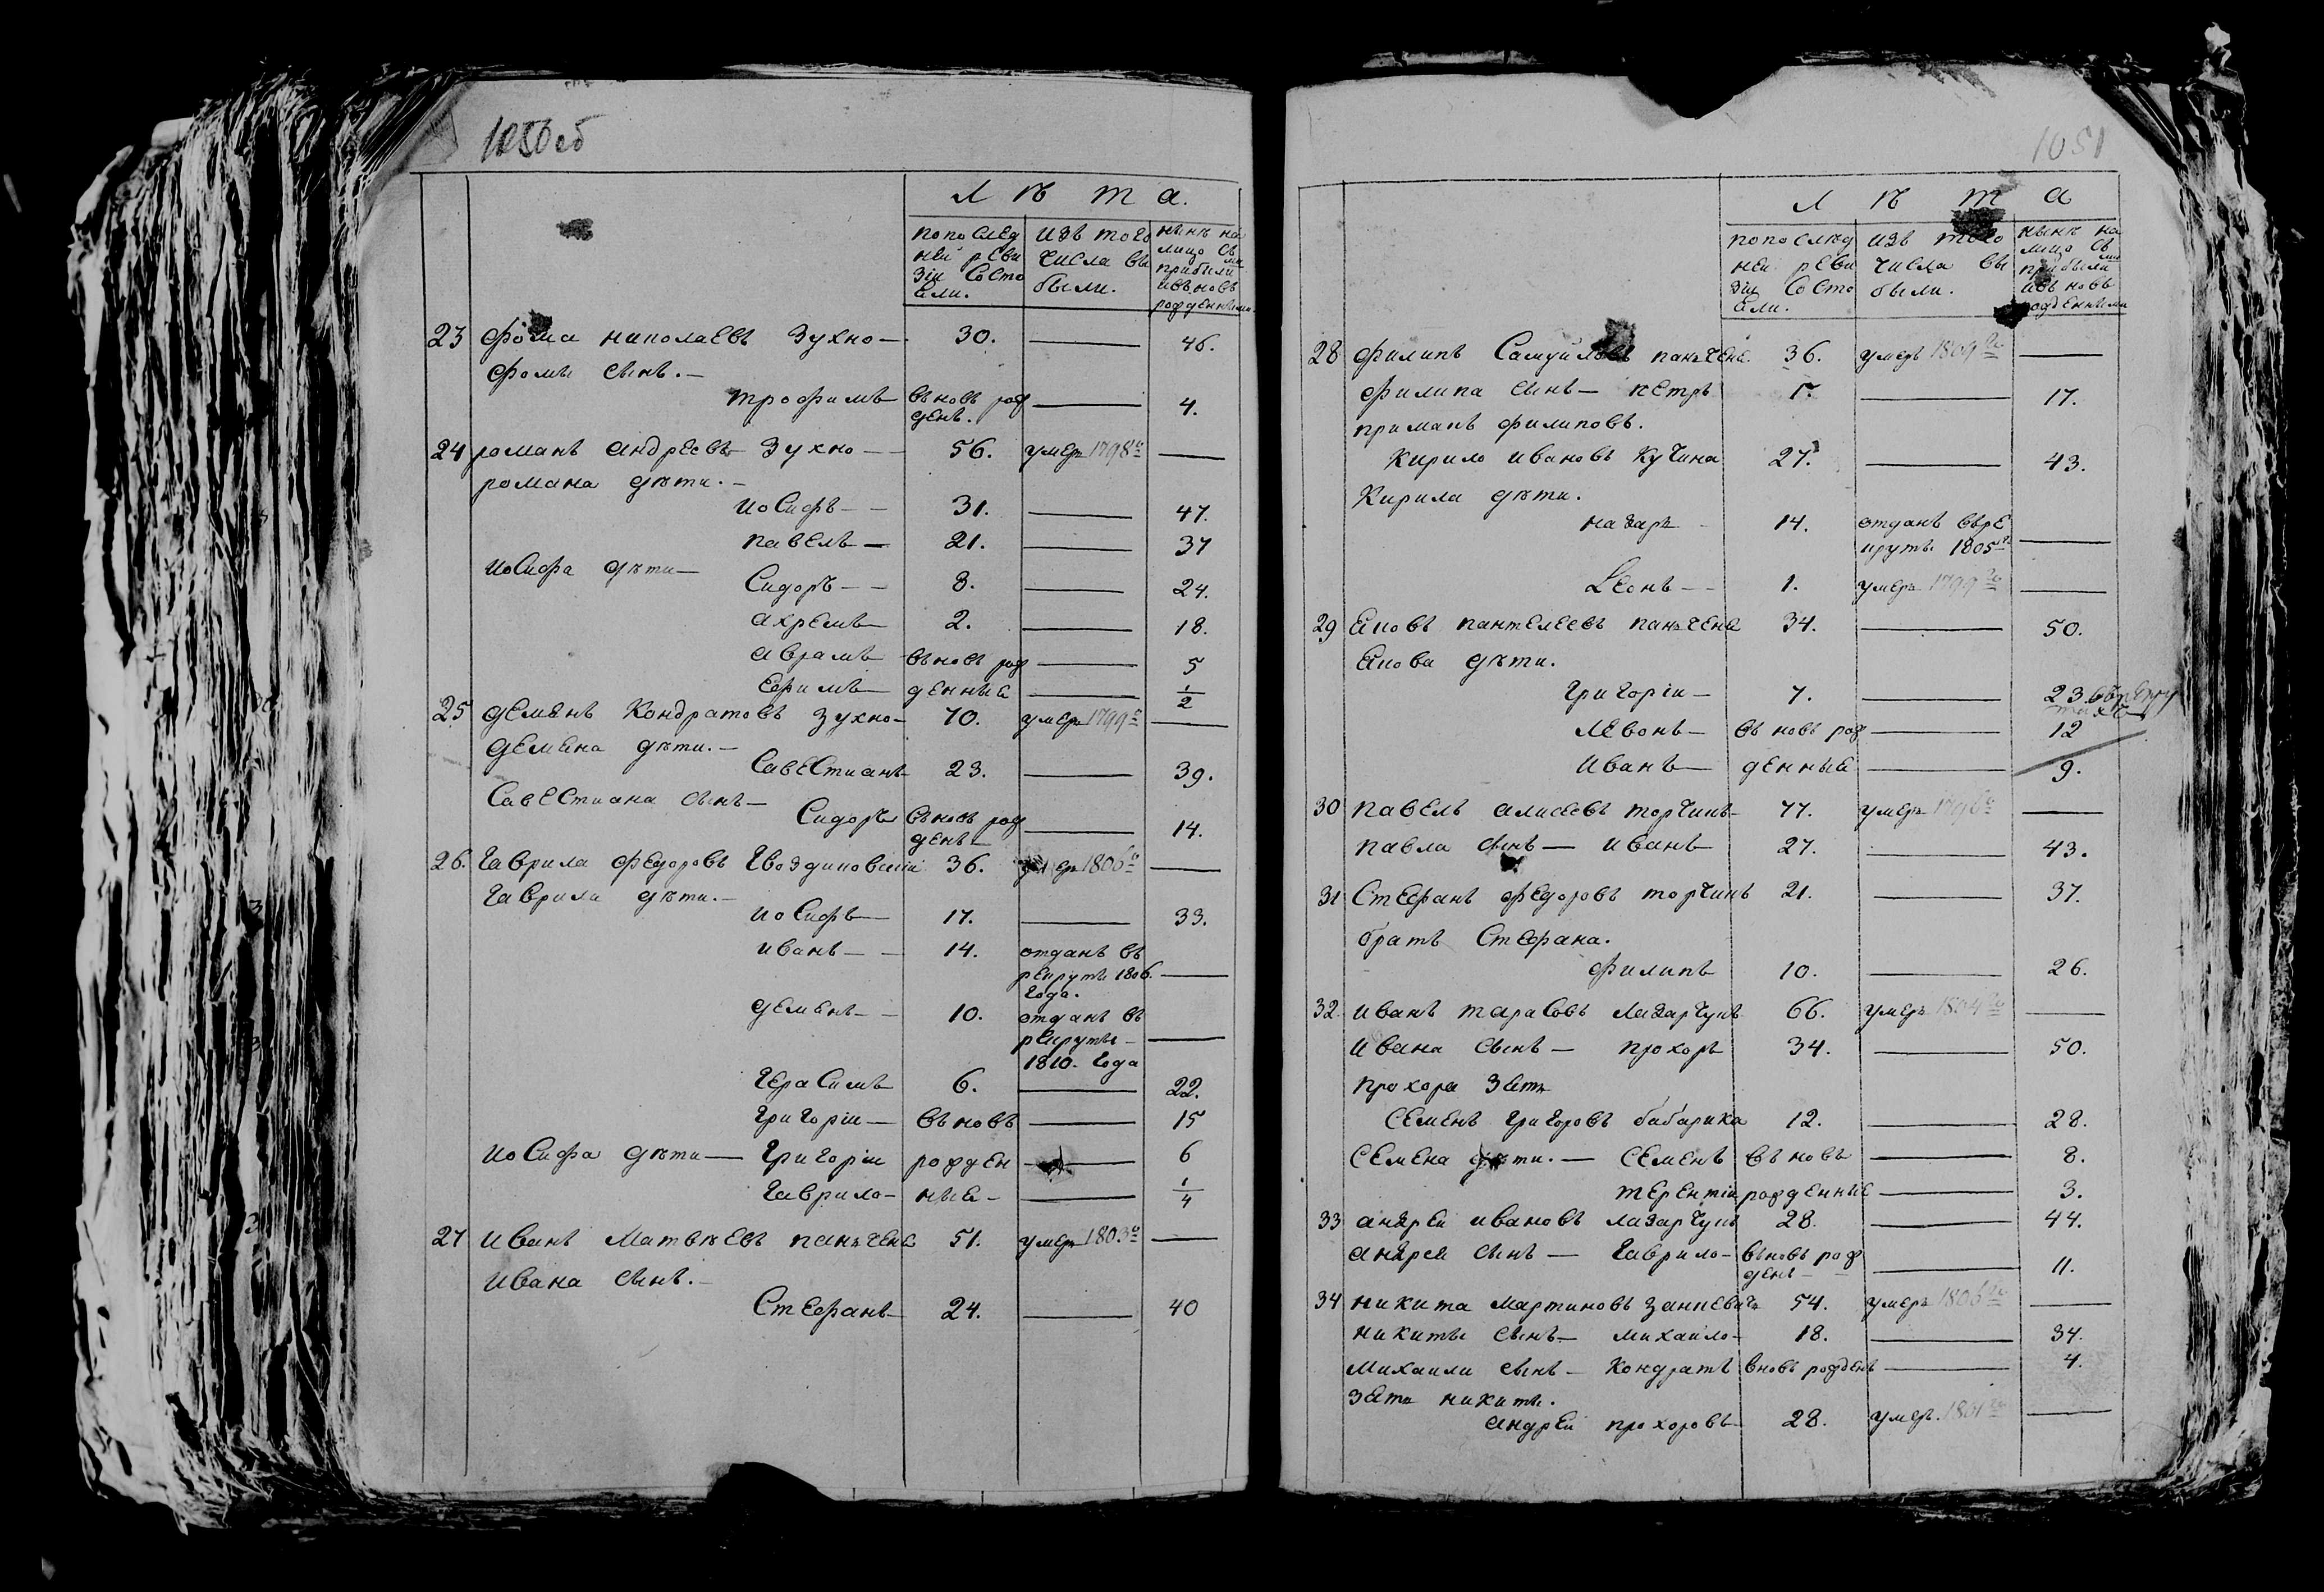 1050 об
Л ѣ т а.
по послед
ней реви
зіи состо
яли.
изъ того
числа вы
были.
нынѣ на
лицо съ
прибыли
ми
и вновь
рожденными
23 Фома николаевъ Зухно — 30. — 46.
Фомы сынъ. —
трофимъ вновь рож
денъ. — 4.
24 романъ андреевъ Зухно — 56. умеръ 1798го —
романа дѣти. —
иосифъ — 31. — 47.
павелъ — 21. — 37
иосифа дѣти —
Сидоръ — 8. — 24.
ахремъ 2. — 18.
аврамъ вновь рож — 5
Ефимъ — денные — 1/2
25 демянъ Кондратовъ зухно — 70. умеръ 1799го —
демяна дѣти. —
Савестианъ 23. — 39.
Савестиана сынъ —
Сидоръ вновь рож
денъ — 14.
26. Гаврила федоровъ Гвоздиковскіи 36. умеръ 1806го —
Гаврила дѣти. —
иосифъ — 17. — 33.
иванъ — 14. отданъ въ
рекруты 1806. —
года.
демянъ — 10. отданъ въ
рекруты — —
1810. года
Герасимъ 6. — 22.
Григоріи — вновь — 15
иосифа дѣти — Григоріи рожден — 6
Гаврило — ные — — 1/4
27 иванъ Матвѣевъ панчене 51. умеръ 1803го —
ивана сынъ. —
Стефанъ — 24. — 40
1051
Л ѣ т а
по послѣд
ней реви
зіи состо
яли.
изъ того
числа вы
были.
нынѣ на
лицо съ
прибылы
ми
и вновь
рожденными
28 филипъ Самуйловъ панчене 36. умеръ 1809го —
филипа сынъ — петръ 1. — 17.
примакъ филиповъ.
Кирило ивановъ Кучина 27. — 43.
Кирила дѣти.
назаръ — 14. отданъ врѣ
круты 1805го —
Леонъ — 1. умеръ 1799го —
29 Яковъ пантелеевъ панчене 34. — 50.
Якова дѣти.
Григоріи — 7. — 23.
левонъ — вновь рож — 12
иванъ — денные — 9.
30 павелъ алисеевъ торчинъ — 77. умеръ —
павла сынъ — иванъ 27. — 43.
31 Стефанъ федоровъ торчинъ 21. — 37.
братъ Стефана.
филипъ 10. — 26.
32. иванъ тарасовъ лазарчукъ 66. умеръ 1804го —
ивана сынъ — прохоръ 34. — 50.
прохора зять
Семенъ григоровъ бабарика 12. — 28.
Семена дѣти. — Семенъ вновь — 8.
терентіи рожденные — 3.
33 андреи ивановъ лазарчукъ 28. — 44.
андрея сынъ — Гаврило — вновь рож
денъ — — 11.
34 никита мартиновъ занкевичъ 54. умеръ 1806го —
никиты сынъ — михаило — 18. — 34.
михаили сынъ — Кондратъ вновь рожденъ — 4.
зять никиты.
андреи прохоровъ 28. умеръ. 1801го —